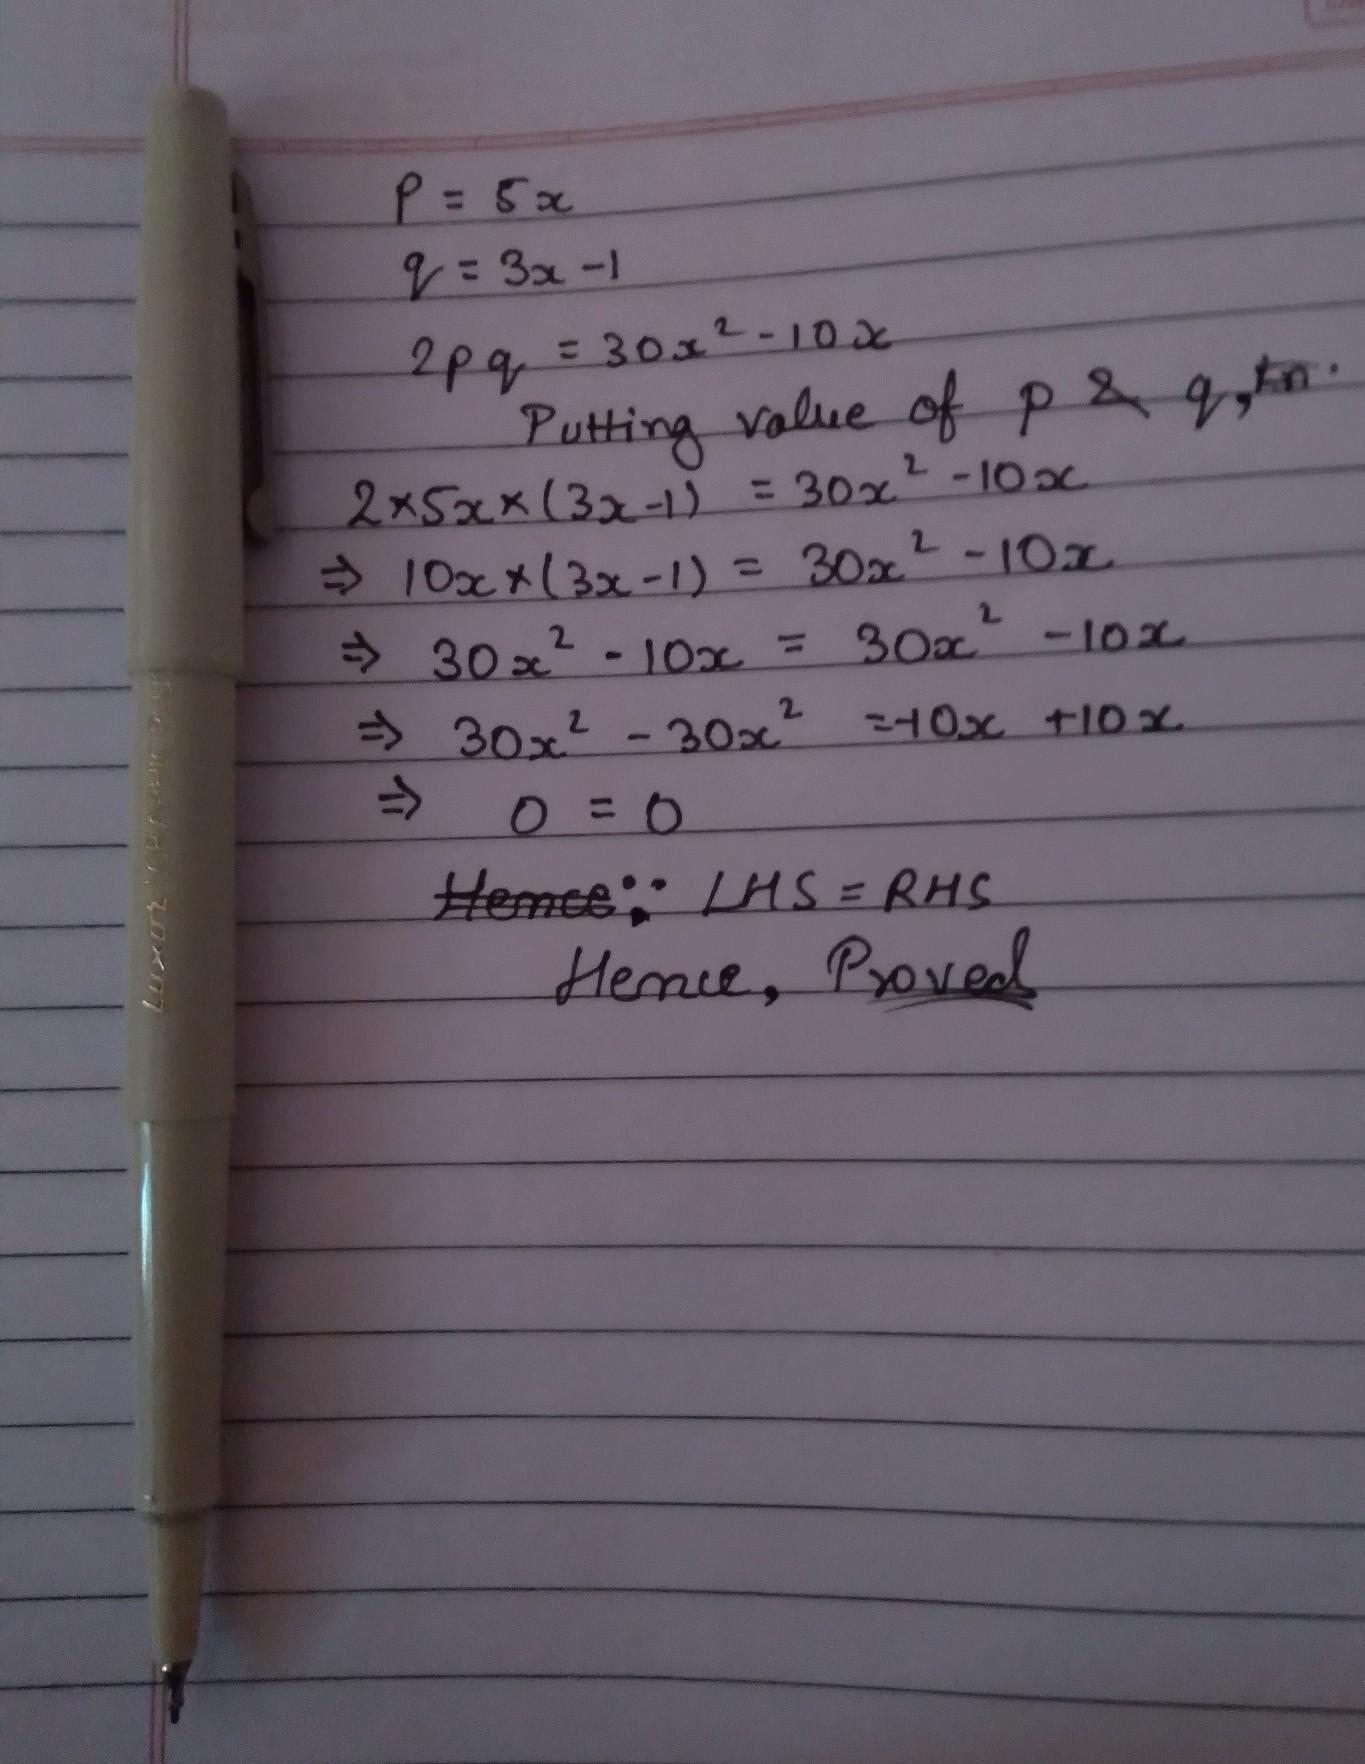 P = 5x
q = 3x - 1
2pq = 30x² - 10x
Putting value of p & q,
2×5x×(3x-1) = 30x² - 10x
⇒ 10x×(3x-1) = 30x² - 10x
⇒ 30x² - 10x = 30x² - 10x
⇒ 30x² - 30x² = -10x + 10x
⇒ 0 = 0
Hence ∴ LHS = RHS
Hence, Proved
LUXOR